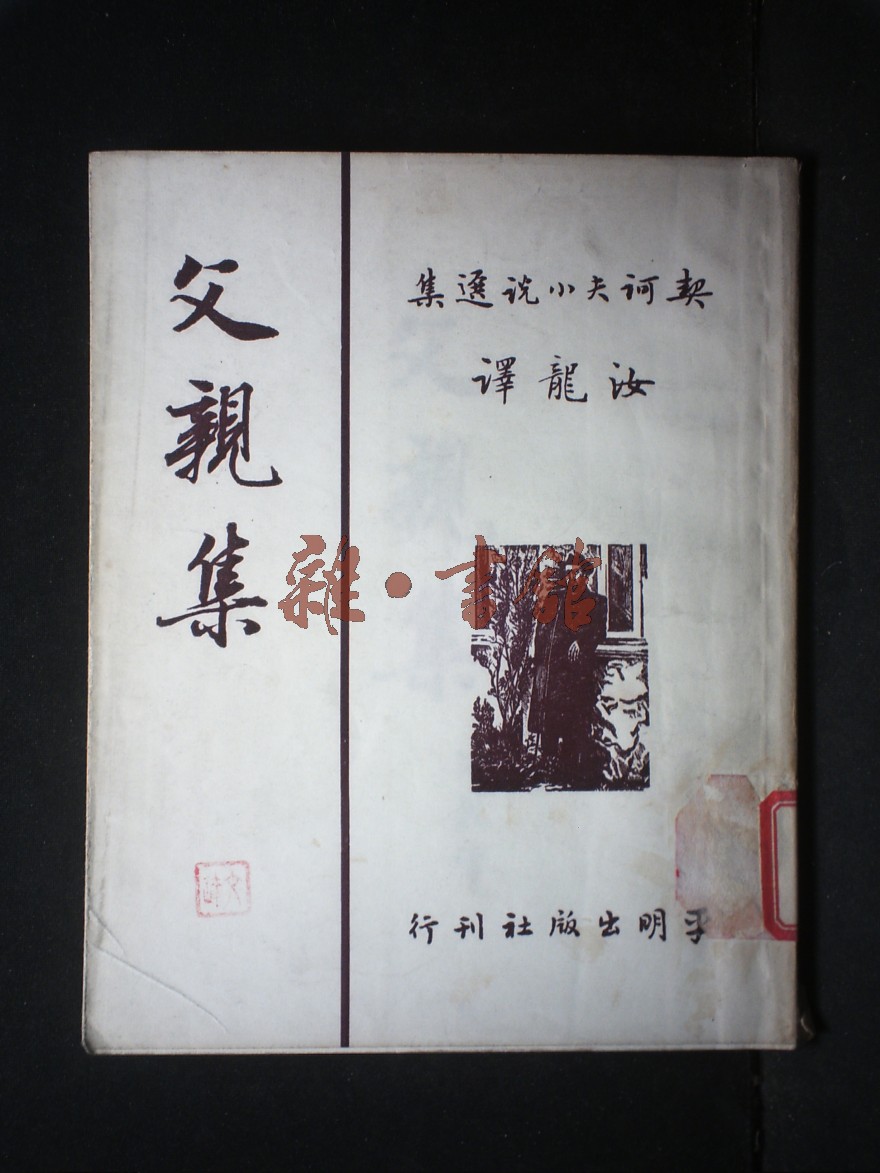 契訶夫小说選集
汝龍譯
父親集
雜·書館
平明出版社刊行